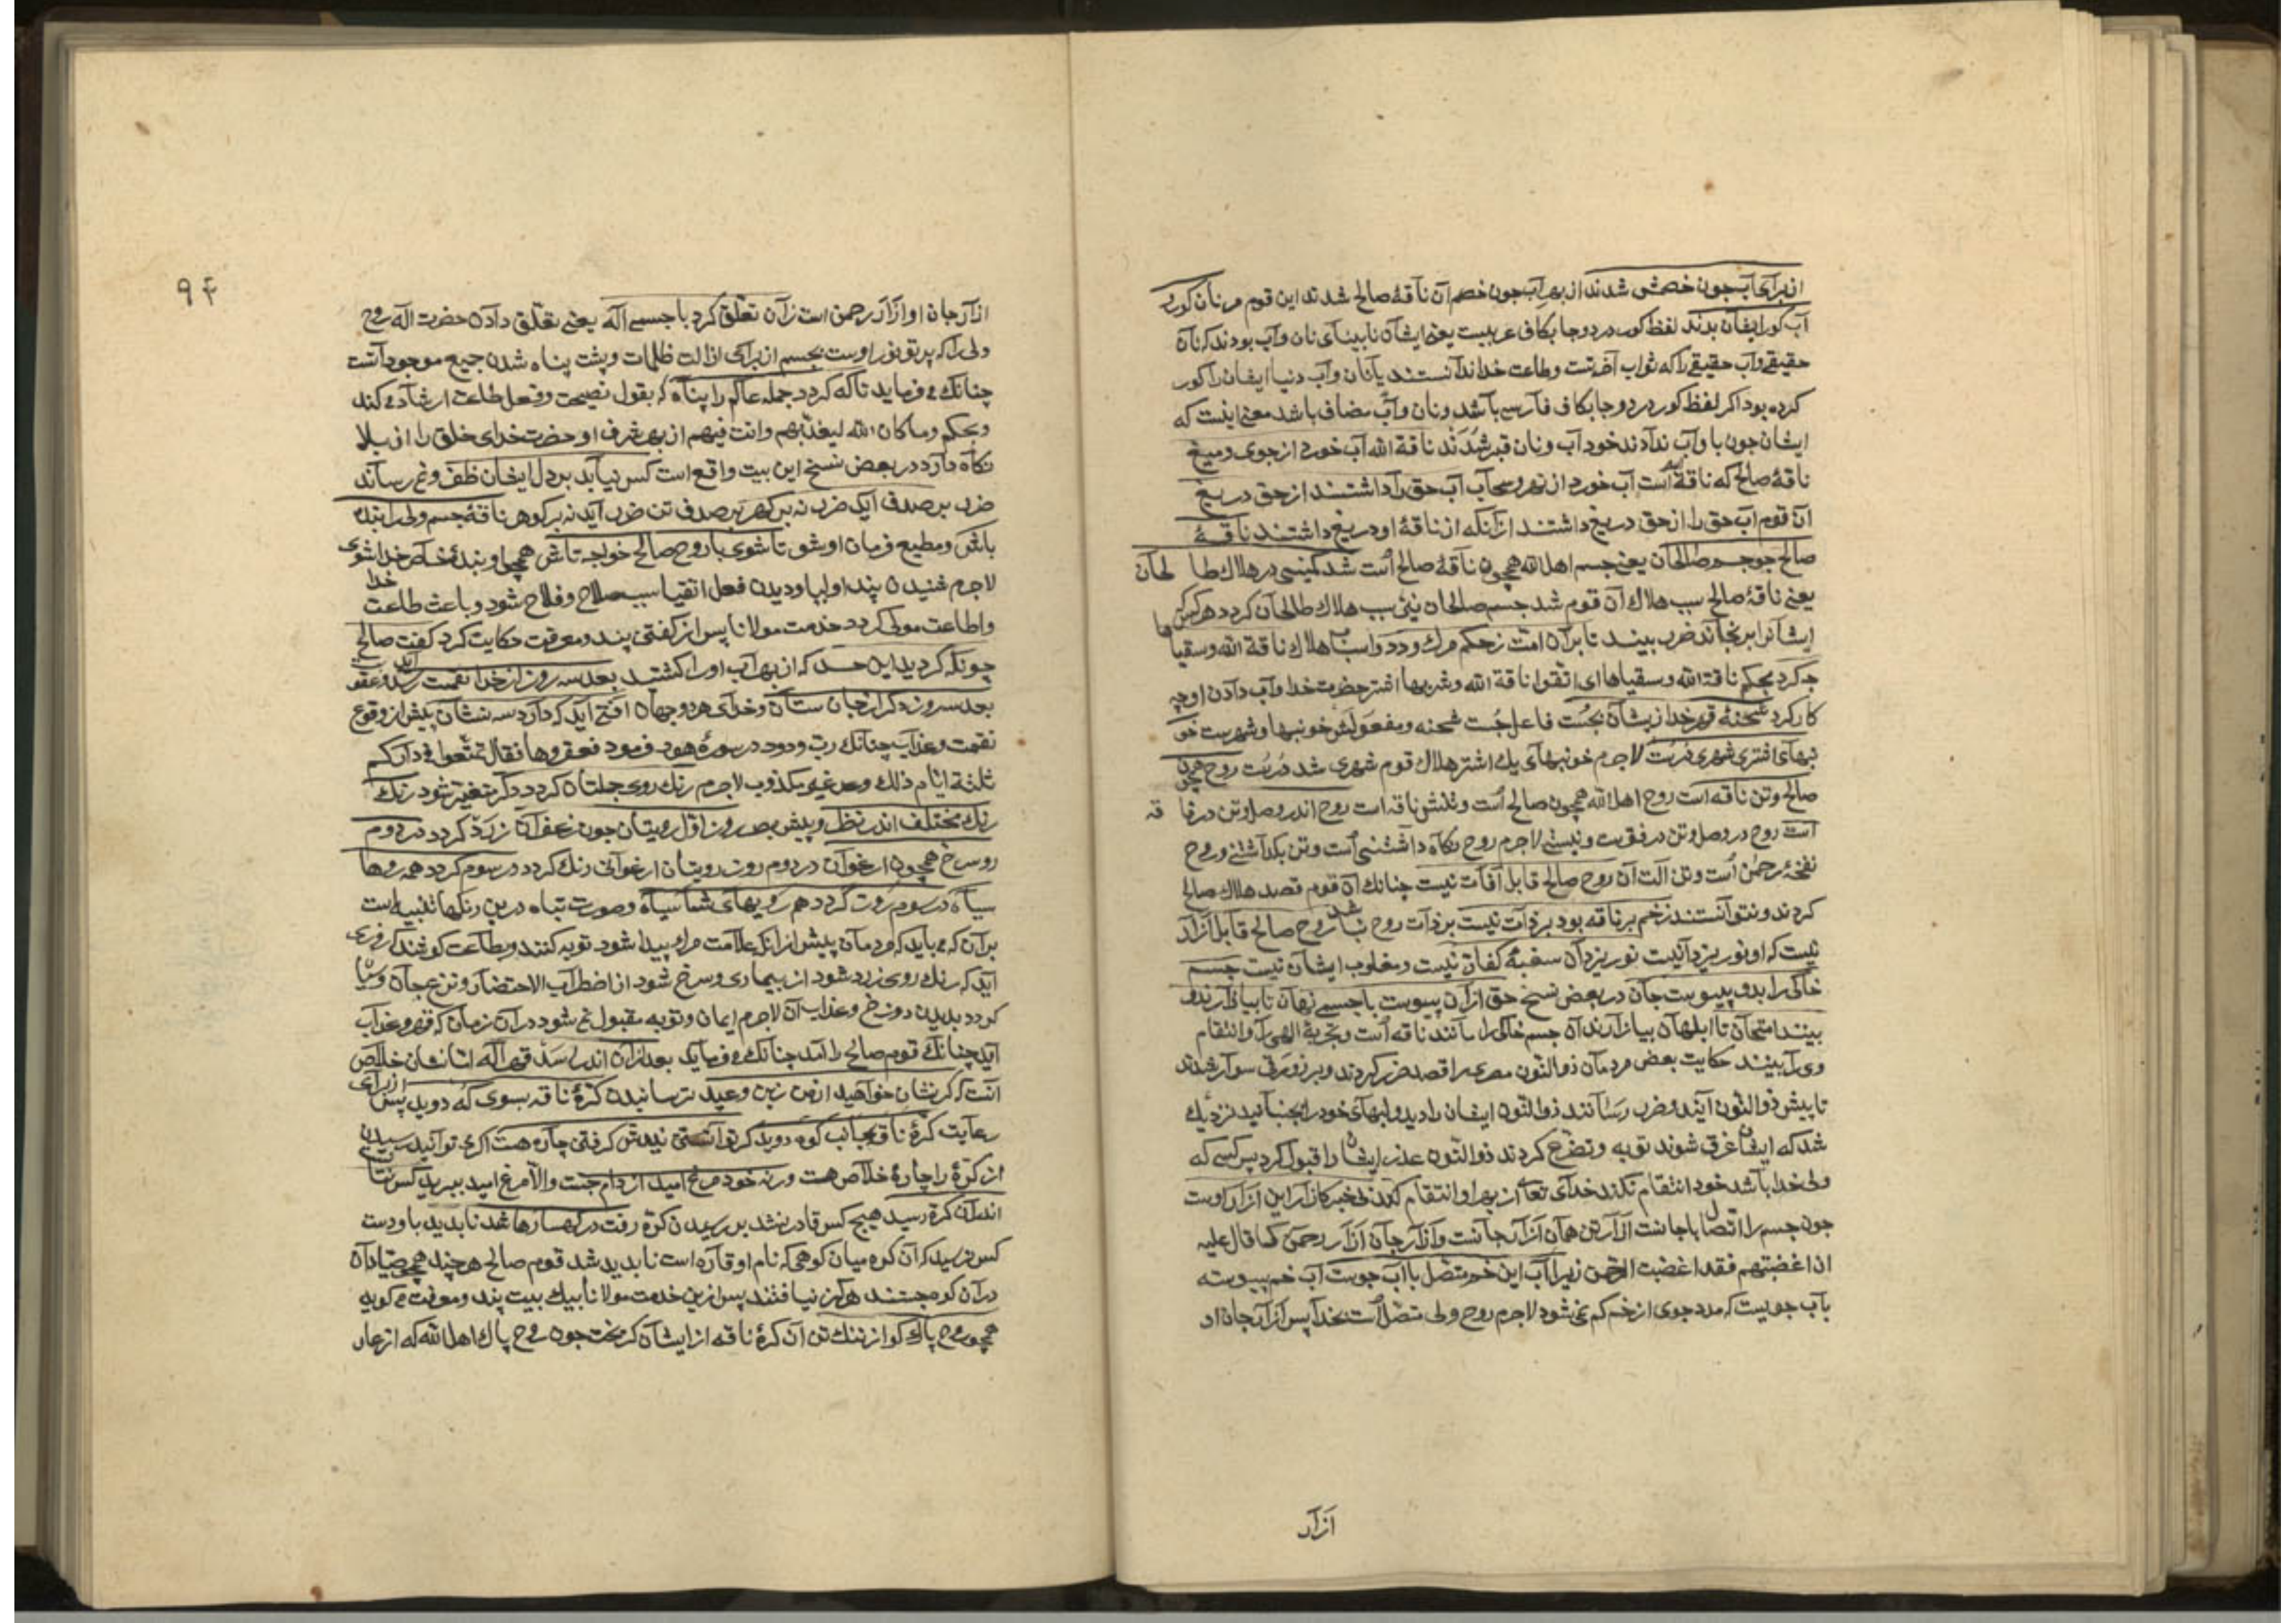 از برای آب جون خصمش شدند از بهر آب جون خصم آن ناقهٔ صالح شدند این قوم مر نان کور و
آب کور ایشان بدند لفظ کور در دو جا بکاف عربیست یعنی ایشان نابینای نان و آب بودند که نان
حقیقی و آب حقیقی را که ثواب آخرتست و طاعت خدا ندانستند یا نان و آب دنیا ایشان را کور
کرده بود اکر لفظ کور در دو جا بکاف فارسی باشد و نان و آب مضاف باشد معنی اینست که
ایشان جون با و آب ندادند خود آب و نان قبر شدند ناقة الله آب خورد از جوی و میغ
ناقهٔ صالح که ناقة الله است آب خورد از نهر و سحاب آب حق را داشتند از حق دریغ
آن قوم آب حق را از حق دریغ داشتند از آنکه از ناقهٔ او دریغ داشتند ناقهٔ
صالح جو جسم صالحان یعنی جسم اهل الله همچون ناقهٔ صالح است شد کمینی در هلاک طالحان
یعنی ناقهٔ صالح سبب هلاک آن قوم شد جسم صالحان نیز سبب هلاک طالحان کردد هر کس که
ایشانرا برنجاند ضرب بیند تا بر آن امت ز حکم مرک و درد و اسباب هلاک ناقة الله و سقیاها
جه کرد بحکم ناقة الله و سقیاها ای اتقوا ناقة الله و شربها اشتر حضرت خدا و آب دادن او چه
کار کرد شحنهٔ قهر خدا زیشان بجست فاعل جست شحنه و مفعولش خونبها و شهریست خو
نبهای اشتری شهری درست لاجرم خونبهای یک اشتر هلاک قوم شهری شد درست روح همچون
صالح و تن ناقه است روح اهل الله همچون صالح است و تنش ناقه است روح اندر وصل و تن در فاقه
است روح در وصل و تن در فقرست و نیستی لاجرم روح نکاه داشتنی است و تن بکداشتنی و روح
نفخهٔ رحمن است و تن آلت آن روح صالح قابل آفات نیست چنانک آن قوم قصد هلاک صالح
کردند و نتوانستند زخم بر ناقه بود بر ذات نیست بر ذات روح نباشد روح صالح قابل آزار
نیست که او نور یزدانیست نور یزدان سغبهٔ کفار نیست و مغلوب ایشان نیست جسم
خاکی را بدو پیوست جان در بعض نسخ حق از آن پیوست با جسمی نهان تا بیازارند و
بینند امتحان تا ابلهان بیازارند آن جسم خاکی را مانند ناقه است و تجربهٔ الهی را و انتقام
وی را بینند حکایت بعض مردمان ذو النون مصری را قصد ضرر کردند و بر زورقی سوار شدند
تا پیش ذو النون آیند و ضرب رسانند ذو النون ایشان را دید و لبهای خود را بجنبانید نزدیک
شد که ایشان غرق شوند توبه و تضرع کردند ذو النون عذر ایشان را قبول کرد پس کسی که
ولی خدا باشد خود انتقام نکند خدای تعالی از بهر او انتقام کند بی خبر کازار این آزار اوست
جون جسم را اتصال با جانست آزار تن همان آزار جانست و آزار جان آزار رحمن کما قال علیه
اذا اغضبتهم فقد اغضبت الرحمن زیرا آب این خم متصل با آب جوست آب خم پیوسته
بآب جوییست که مدد جوی از خم کم نمی شود لاجرم روح ولی متصل است بخدا پس آزار جان او
آزار
۹۴
آزار جان او آزار رحمن است زآن تعلق کرد با جسمی اله یعنی تعلق دادن حضرت اله روح
ولی را که پرتو نور اوست بجسم از برای ازالت ظلمات و پشت پناه شدن جمیع موجود آتست
چنانک می فرماید تا که کردد جمله عالم را پناه که بقول نصیحت و فعل طاعت ارشاد می کند
و بحکم و ما کان الله لیعذبهم و انت فیهم از بهر شرف او حضرت خدای خلق را از بلا
نکاه دارد در بعض نسخ این بیت واقع است کس نیابد بر دل ایشان ظفر و غم رساند
ضرب بر صدف ایک ضرب نه بر کهر بر صدف تن ضرب آید نه بر کوهر ناقهٔ جسم ولی را بنده
باش و مطیع فرمان او شو تا شوی با روح صالح خواجه تاش همچو او بندهٔ خاص خدا شوی
لاجرم شنیدن پند اولیا و دیدن فعل اتقیا سبب صلاح و فلاح شود و باعث طاعت خدا
و اطاعت مولی کردد خدمت مولانا پس از کفتن پند و معرفت حکایت کرد کفت صالح
چونکه کردید این حسد که از بهر آب او را کشتند بعد سه روز از خدا نقمت رسد
بعد سه روز دکر از جان ستان و خدای هر دو جهان آفتی آید که دارد سه نشان پیش از وقوع
نقمت و عذاب چنانک رب ودود در سورهٔ هود فرمود فعقروها فقال تمتعوا فی دارکم
ثلثة ایام ذلک وعد غیر مکذوب لاجرم رنک روی جملتان کردد دکر متغیر شود رنک
رنک مختلف اندر نظر و پیش بصر روز اول رویتان جون زعفران زرد کردد در دوم
رو سرخ همچون ارغوان در دوم روز رویتان ارغوانی رنک کردد در سوم کردد همه روها
سیاه در سوم روز کردد همه رویهای شما سیاه و صورت تباه درین رنکها تنبیه است
بر آن که می باید که مردمان پیش از آنک علامت مرک پیدا شود توبه کنند و بطاعت کوشند که روزی
آید که رنک روی زرد شود از بیماری و سرخ شود از اضطراب الاحتضار و نزع جان و سیاه
کردد بدیدن دوزخ و عذاب آن لاجرم ایمان و توبه مقبول نمی شود در آن زمان که قهر و عذاب
آید چنانک قوم صالح را آمد چنانک می فرماید بعد از آن اندر رسد قهر اله از نشان خلاص
آنست کر نشان خواهید از من زین وعید ترسانیدن کرهٔ ناقه بسوی که دوید پس از برای
رعایت کرهٔ ناقه بجانب کوه دوید کر توانستی بدش کرفتن چاره هست اکر می توانید رسیدن
از کره را چارهٔ خلاص هست ورنه خود مرغ امید از دام جست والا مرغ امید ببرید کس نتانست
اندر آن کره رسید هیچ کس قادر نشد بر رسیدن کره رفت در کهسارها شد ناپدید باو دست
کس نرسید که آن کوه میان کوهی که نام او قاره است ناپدید شد قوم صالح هر چند همچو صیادان
در آن کوه جستند هرکز نیافتند پس ازین خدمت مولانا بیک بیت پند و معرفت می کوید
همچو روح پاک کو از ننک تن آن کرهٔ ناقه از ایشان کریخت جون روح پاک اهل الله که از عار